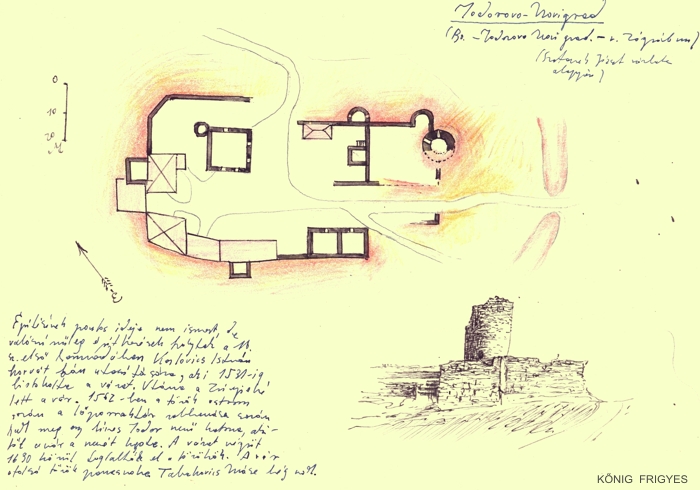 Todorovo-Novigrad
(Bo. - Todorovo Novi grad. - v. Zágráb m.)
(Szatanek József vázlata
alapján)
0
10
20
M
É
Építésének pontos ideje nem ismert, de
valószínűleg építkezések folytak a 16.
sz. első harmadában Keglovics István
horvát bán 1531-ig
birtokolta a várat. Utána a Zrínyieké
lett a vár. 1562-ben a török ostrom
során a lőporraktár robbanása során
halt meg egy Todor nevű katona,
a vár a nevét kapta. A várat végül
1690 körül foglalták el a törökök. A vár
utolsó török parancsnoka Tabakovics volt.
KÖNIG FRIGYES